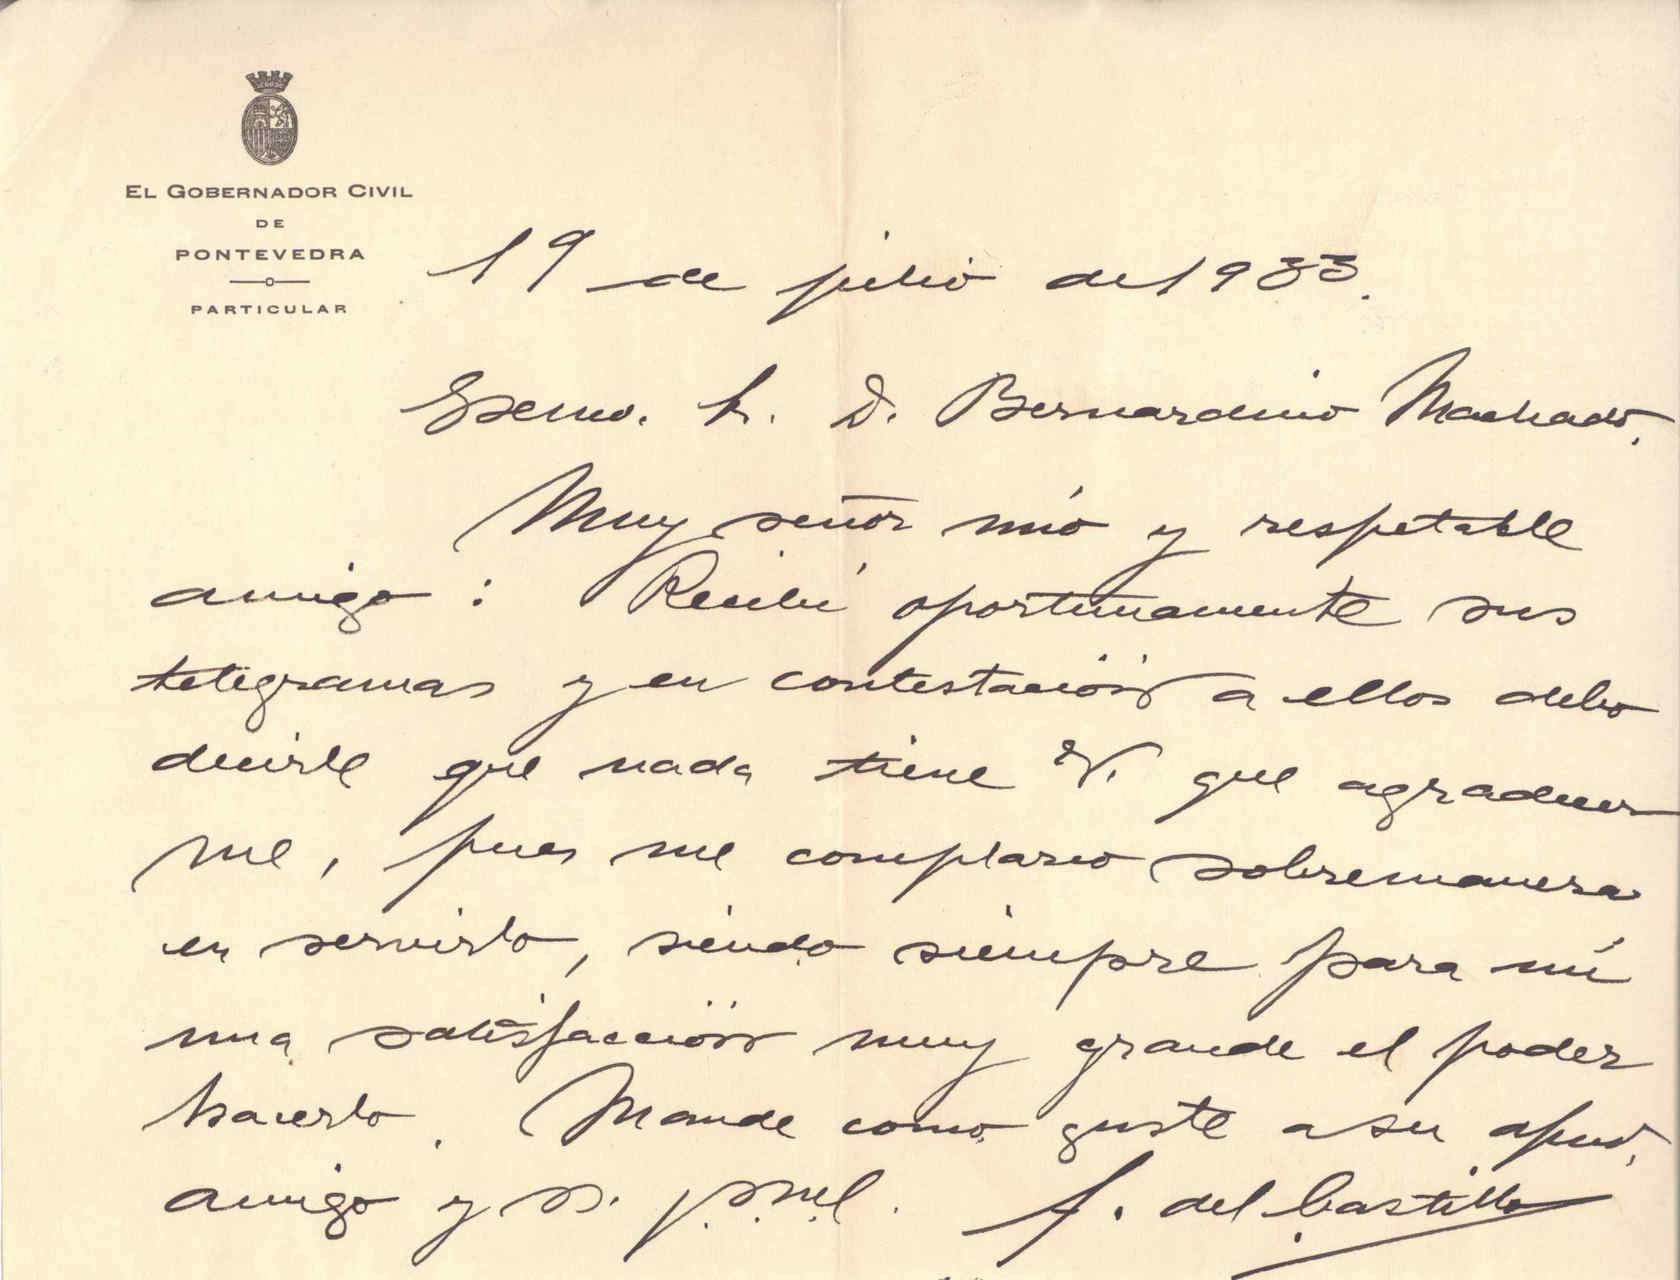 EL GOBERNADOR CIVIL
DE
PONTEVEDRA
PARTICULAR
19 de julio de 1933.
Excmo. Sr. D. Bernardino Machado.
Muy señor mío y respetable
amigo: Recibí oportunamente sus
telegramas y en contestación a ellos debo
decirle que nada tiene V. que agradecer
me, pues me complazco sobremanera
en servirlo, siendo siempre para mí
una satisfacción muy grande el poder
hacerlo. Mande como guste a su afmo.
amigo y s. s.
f. del Castillo